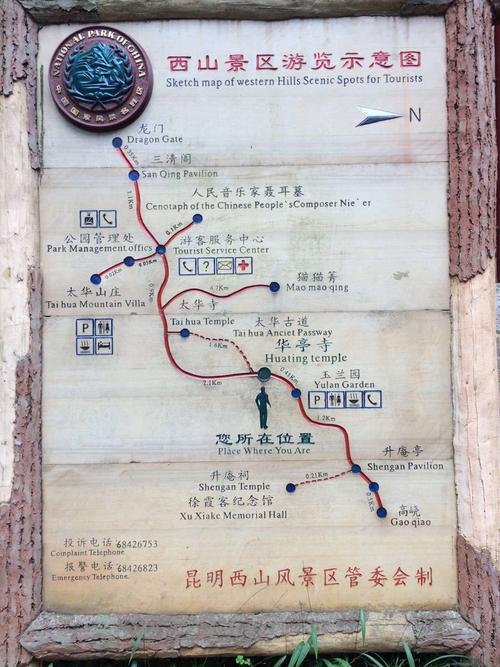 NATIONAL PARK OF CHINA
中国国家风景名胜区
西山景区游览示意图
Sketch map of western Hills Scenic Spots for Tourists
N
龙门
Dragon Gate
0.35Km
三清阁
San Qing Pavilion
1.1Km
人民音乐家聂耳墓
Cenotaph of the Chinese People`sComposer Nie`er
0.1Km
公园管理处
Park Management offics
游客服务中心
Tourist Service Center
?
太华山庄
Tai hua Mountain Villa
猫猫箐
Mao mao qing
4.7Km
0.9Km
太华寺
Tai hua Temple
太华古道
Tai hua Anciet Passway
P
1.6Km
华亭寺
Huating temple
2.1Km
0.41Km
玉兰园
Yulan Garden
P
1.2Km
您所在位置
Place Where You Are
升庵亭
Shengan Pavilion
升庵祠
Shengan Temple
0.21Km
徐霞客纪念馆
Xu Xiake Memorial Hall
高峣
Gao qiao
投诉电话 68426753
Complaint Telephone
报警电话 68426823
Emergency Telephone.
昆明西山风景区管委会制